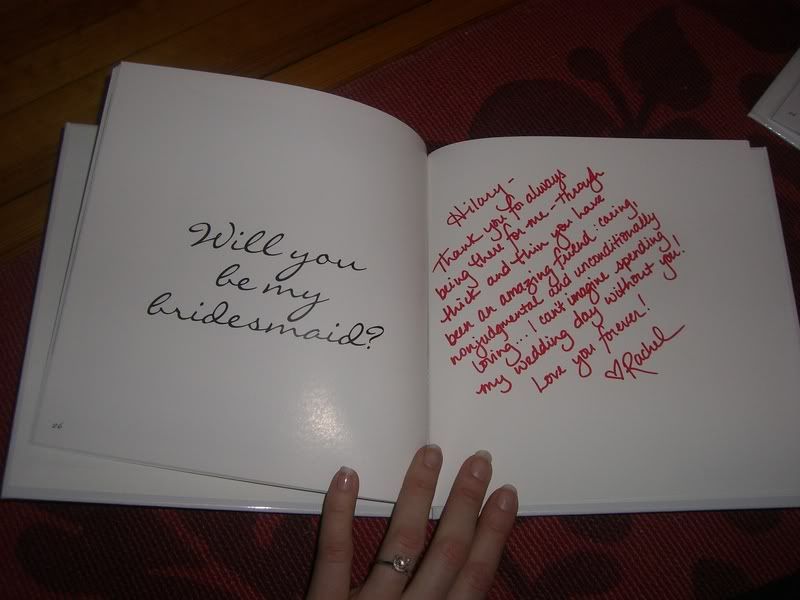 Will you
be my
bridesmaid?
26
Hilary-
Thank you for always
being there for me - through
thick and thin you have
been an amazing friend: caring,
nonjudgmental and unconditionally
loving... I can't imagine spending
my wedding day without you!
Love you forever!
♡Rachel